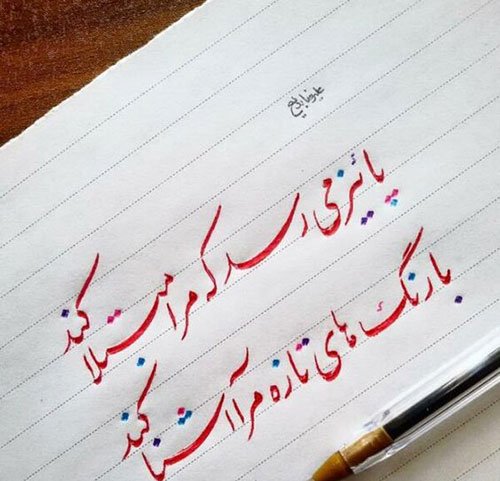 علیرضا بدیع
پائیز می رسد که مرا مبتلا کند
با رنگ های تازه مرا آشنا کند